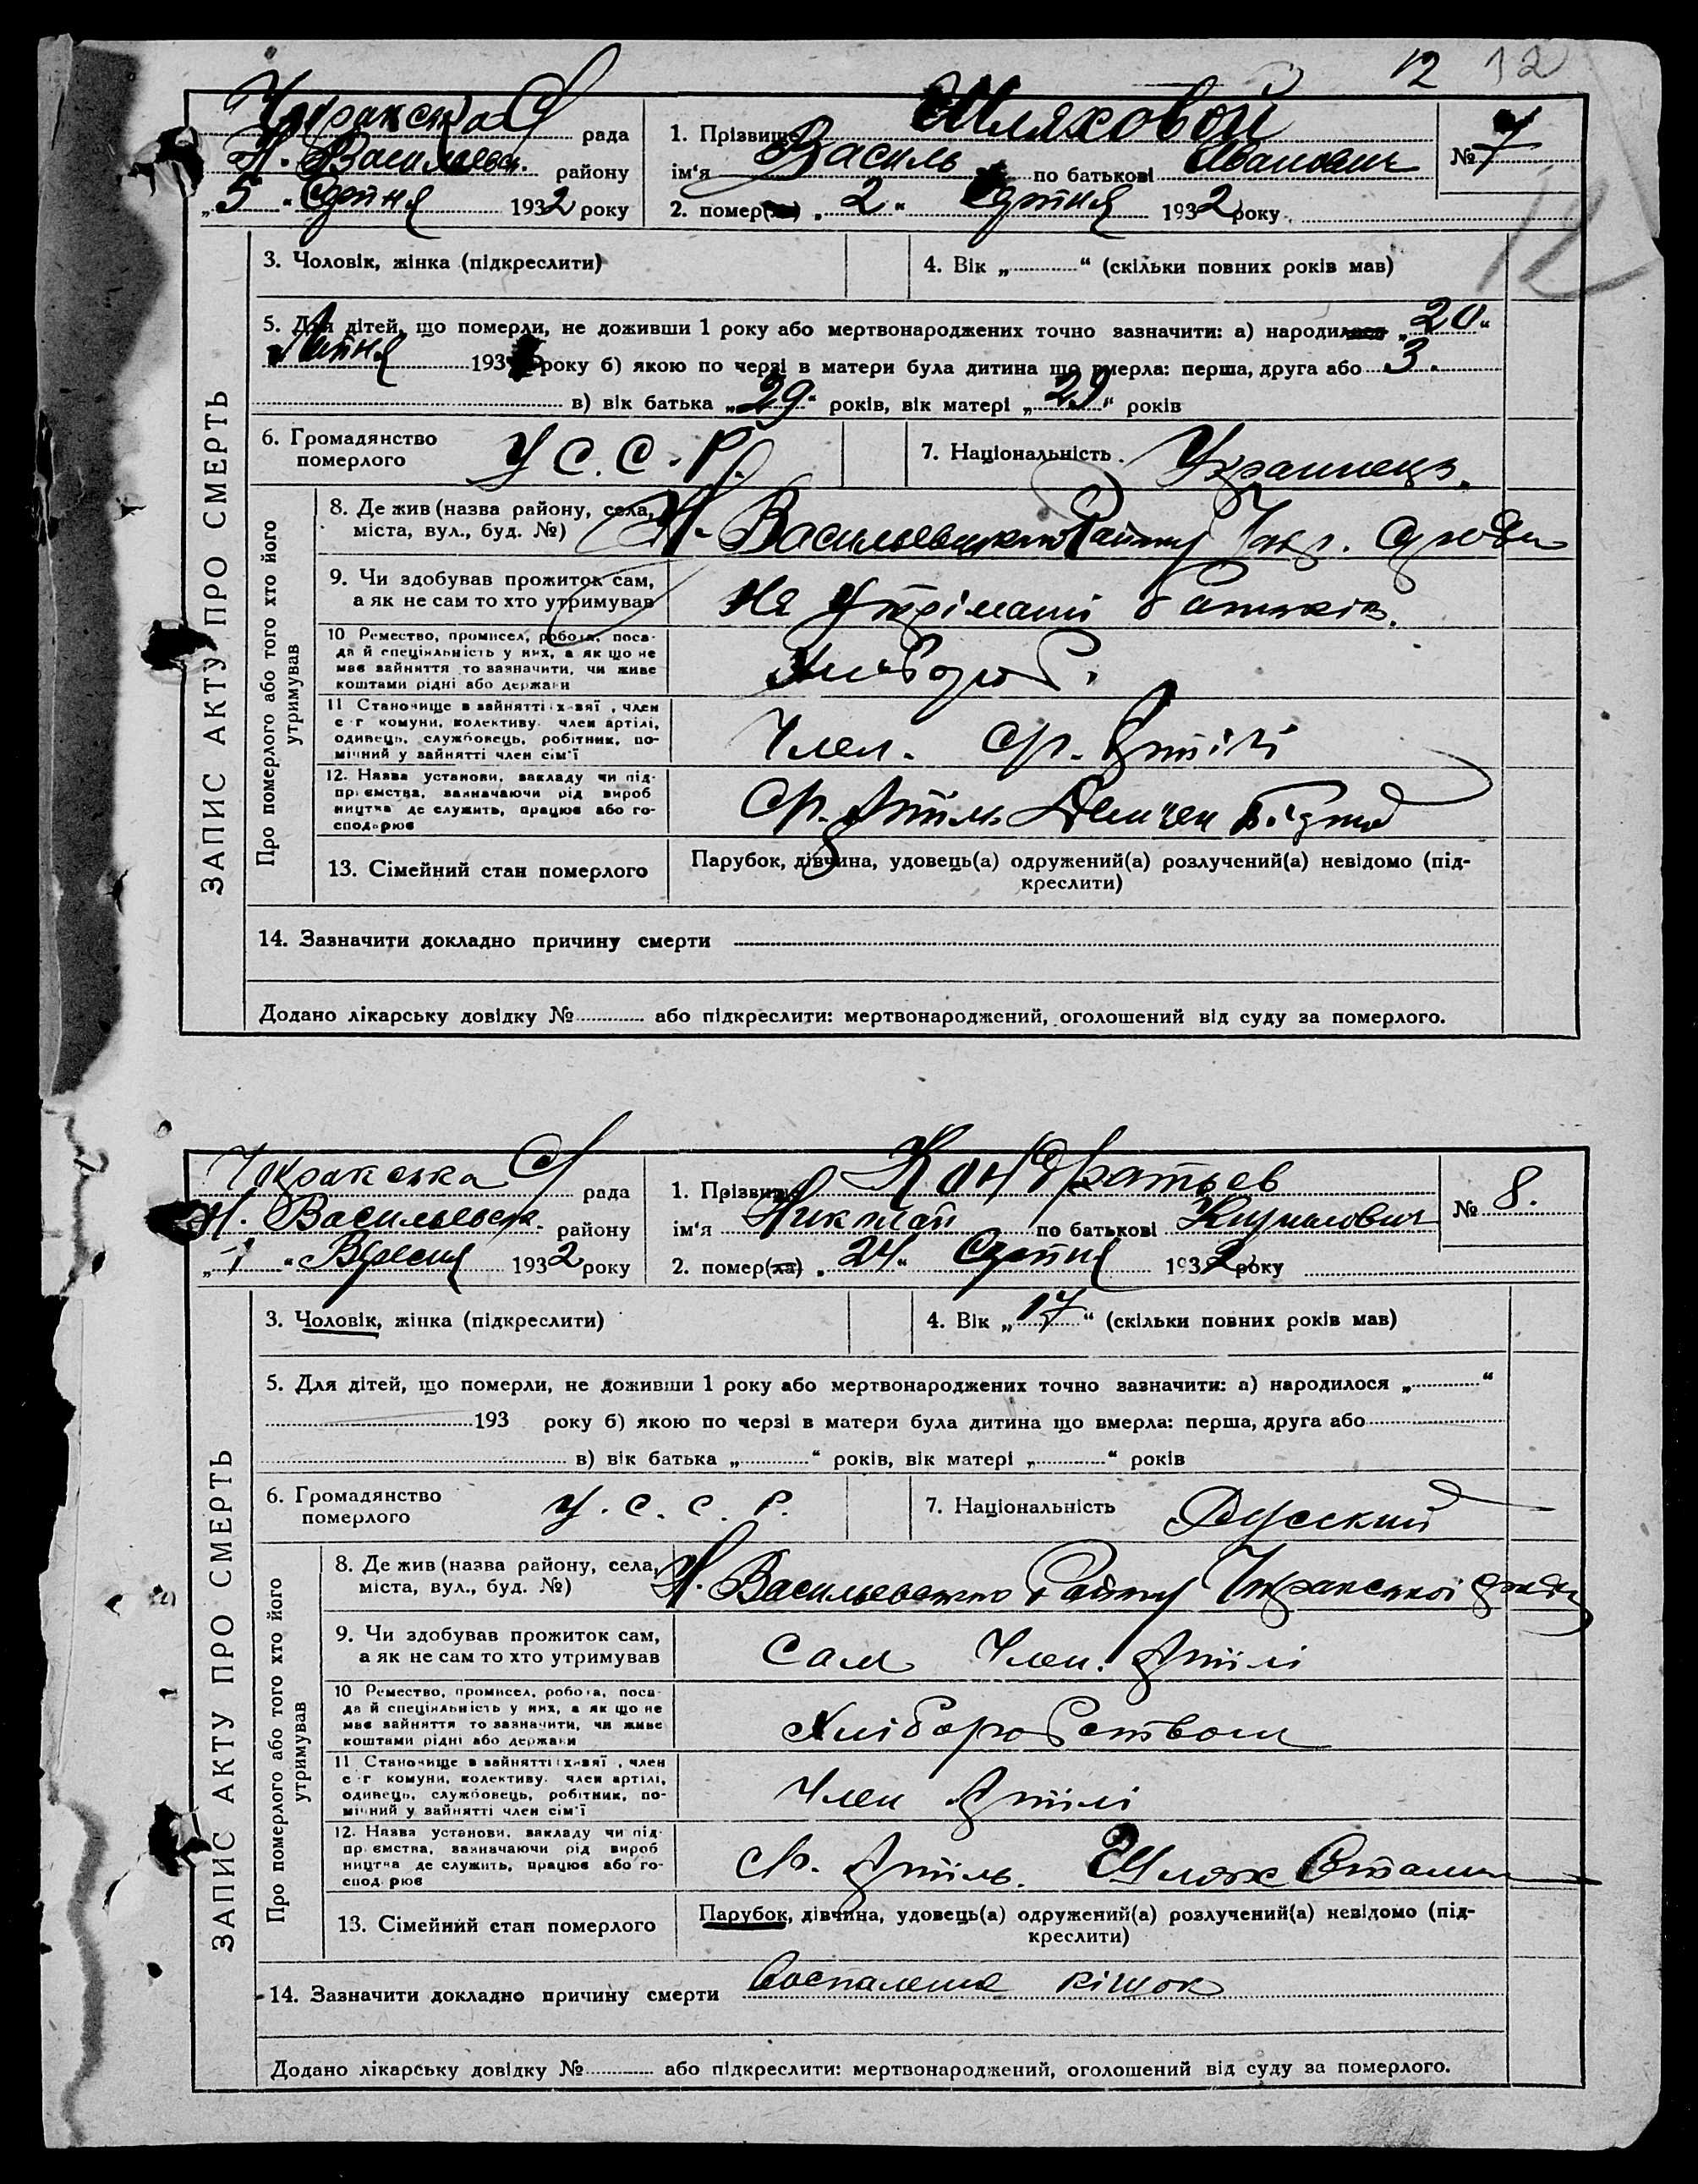 12 12
Чокракська С/ рада
Н. Васильевск. району
„5“ Серпня 1932 року
1. Прізвище Шляховой
ім‘я Василь по батькові Иванович
№ 7
2. помер(ла) „2“ Серпня 1932 року
12
ЗАПИС АКТУ ПРО СМЕРТЬ
3. Чоловік, жінка (підкреслити)
4. Вік „ “ (скільки повних років мав)
5. Для дітей, що померли, не доживши 1 року або мертвонароджених точно зазначити: а) народилося „20“
Липня 193 року б) якою по черзі в матери була дитина що вмерла: перша, друга або 3.
в) вік батька „29“ років, вік матері „29“ років
6. Громадянство
померлого
У С. С. Р.
7. Національність Украинець.
Про померлого або того хто його
утримував
8. Де жив (назва району, села,
міста, вул., буд. №)
Н. Васильевського Району Чокр.
9. Чи здобував прожиток сам,
а як не сам то хто утримував
На утріманні батьків.
10 Ремество, промисел, робота, поса-
да й спеціяльність у них, а як що не
має зайняття то зазначити, чи живе
коштами рідні або держави
Хлебороб.
11 Становище в зайнятті: хазяї, член
с-г комуни, колективу, член артілі,
одинець, службовець, робітник, по-
мічний у зайнятті член сім‘ї
Член. Ср. Артілі
12. Назва установи, закладу чи під-
приємства, зазначаючи рід вироб
ництва де служить, працює або го-
сподарює
Ср. Артіль
13. Сімейний стан померлого
Парубок, дівчина, удовець(а) одружений(а) розлучений(а) невідомо (під-
креслити)
14. Зазначити докладно причину смерти
Додано лікарську довідку № або підкреслити: мертвонароджений, оголошений від суду за померлого.
Чокракська С/ рада
Н. Васильевск. району
„1“ Вересня 1932 року
1. Прізвище Кондратьев
ім‘я Николай по батькові Кирилович
№ 8.
2. помер(ла) „24“ Серпня 1932 року
ЗАПИС АКТУ ПРО СМЕРТЬ
3. Чоловік, жінка (підкреслити)
4. Вік „17“ (скільки повних років мав)
5. Для дітей, що померли, не доживши 1 року або мертвонароджених точно зазначити: а) народилося „ “
193 року б) якою по черзі в матери була дитина що вмерла: перша, друга або
в) вік батька „ “ років, вік матері „ “ років
6. Громадянство
померлого
У. С. С. Р.
7. Національність Русский
Про померлого або того хто його
утримував
8. Де жив (назва району, села,
міста, вул., буд. №)
Н. Васильевского Району Чокракської
9. Чи здобував прожиток сам,
а як не сам то хто утримував
Сам Член. Артілі
10 Ремество, промисел, робота, поса-
да й спеціяльність у них, а як що не
має зайняття то зазначити, чи живе
коштами рідні або держави
Хлібороботвом
11 Становище в зайнятті: хазяї, член
с-г комуни, колективу, член артілі,
одинець, службовець, робітник, по-
мічний у зайнятті член сім‘ї
Член Артілі
12. Назва установи, закладу чи під-
приємства, зазначаючи рід вироб
ництва де служить, працює або го-
сподарює
Ср. Артіль. Шлях Сталина
13. Сімейний стан померлого
Парубок, дівчина, удовець(а) одружений(а) розлучений(а) невідомо (під-
креслити)
14. Зазначити докладно причину смерти Воспаления кішок
Додано лікарську довідку № або підкреслити: мертвонароджений, оголошений від суду за померлого.